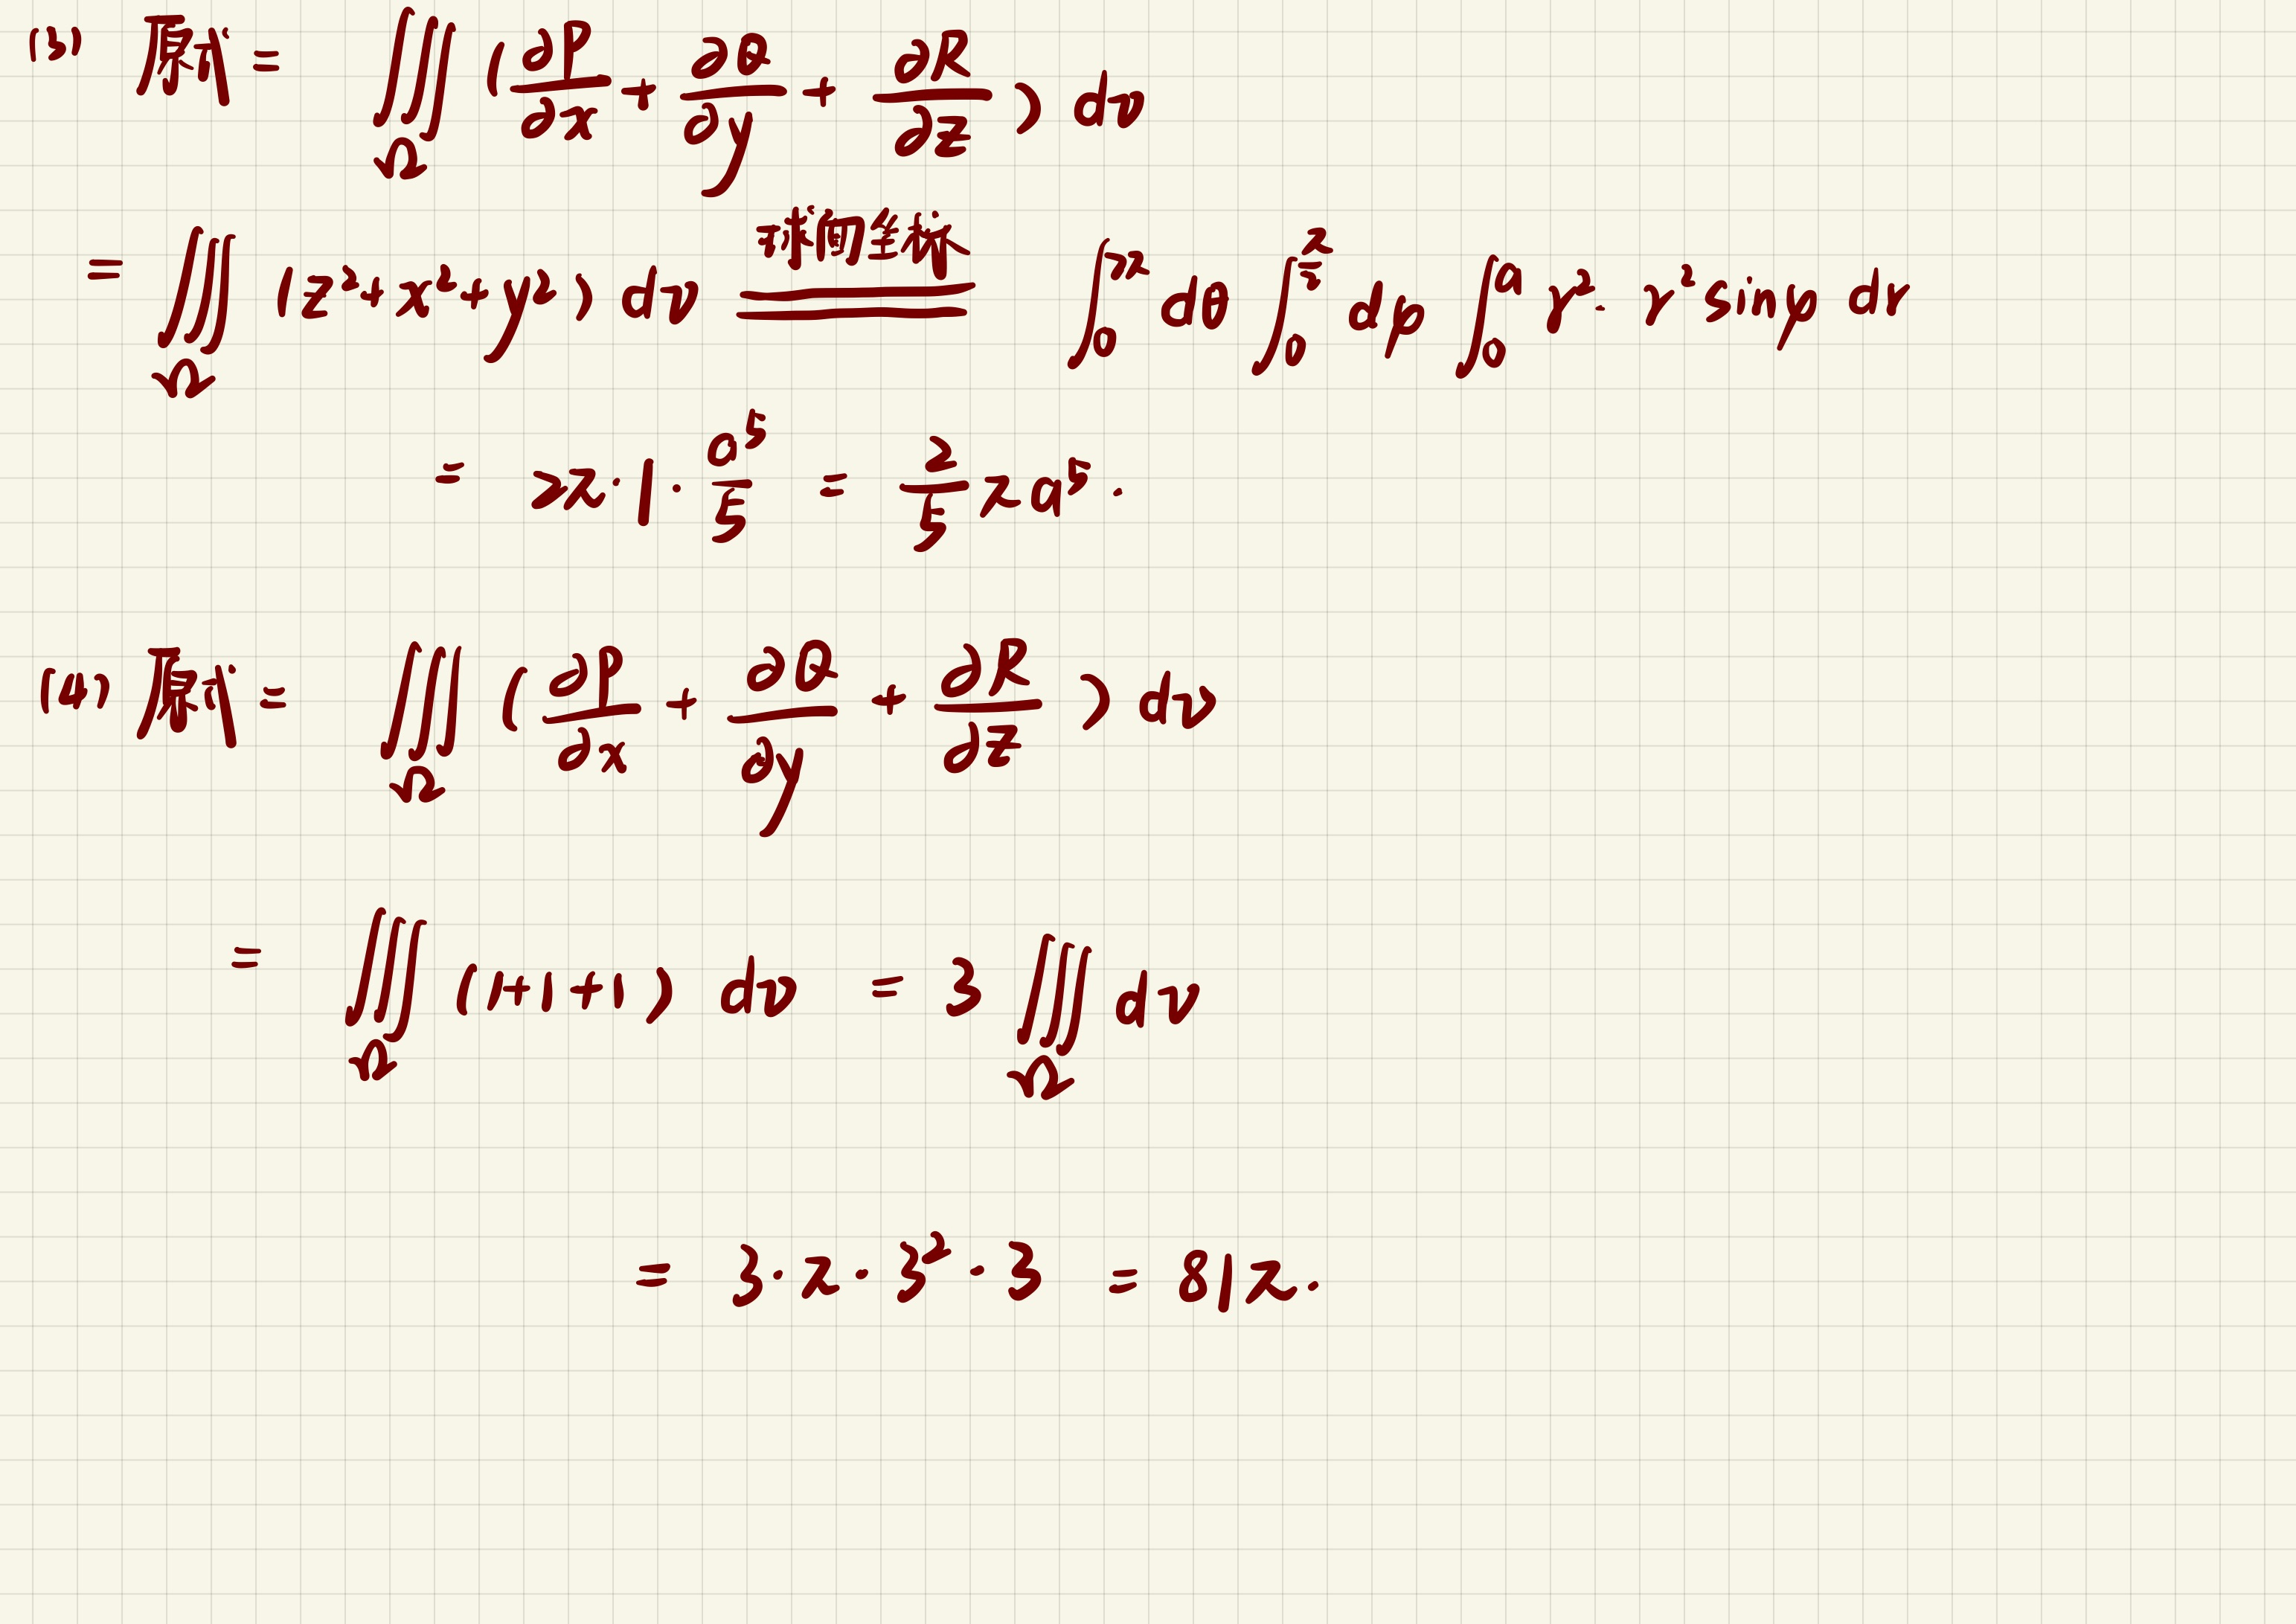 (3) 原式 = ∭_Ω (∂P/∂x + ∂Q/∂y + ∂R/∂z) dv
= ∭_Ω (z² + x² + y²) dv 球面坐标 ∫₀^{2π} dθ ∫₀^{π/2} dφ ∫₀^a r² · r² sinφ dr
= 2π · 1 · a⁵/5 = 2/5 πa⁵.
(4) 原式 = ∭_Ω (∂P/∂x + ∂Q/∂y + ∂R/∂z) dv
= ∭_Ω (1+1+1) dv = 3 ∭_Ω dv
= 3 · π · 3² · 3 = 81π.